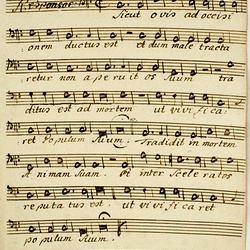 Responsor:
Sicut ovis ad occisi
onem ductus est et dum male tracta
retur non aperuit os suum tra
ditus est ad mortem ut vivifica:
ret Populum suum. Tradidit in mortem
animam suam. et inter Sceleratos
reputatus est. ut vivificaret
populum suum.